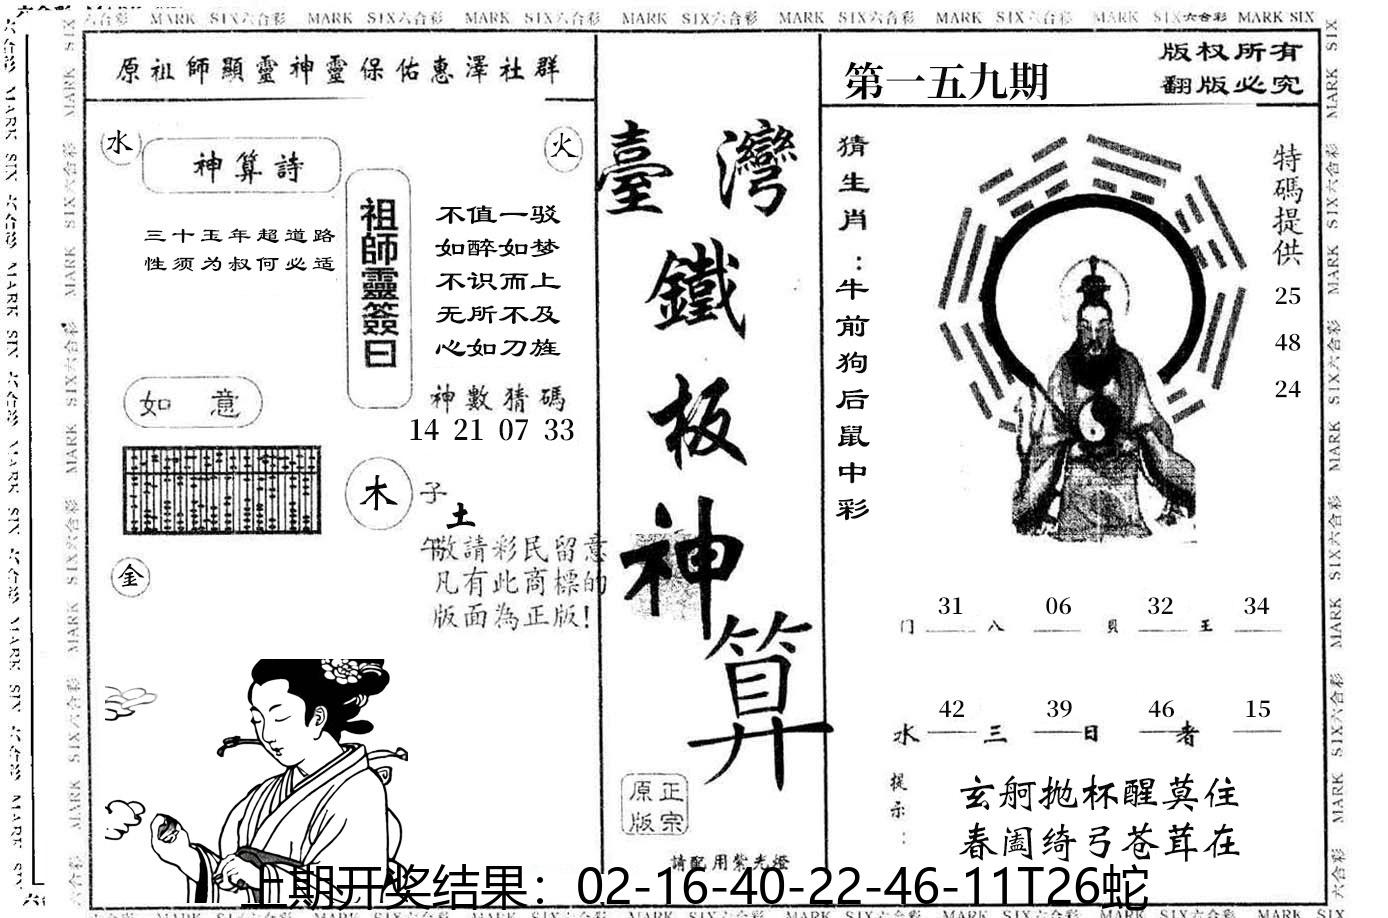 MARK SIX六合彩 MARK SIX六合彩 MARK SIX六合彩 MARK SIX六合彩 MARK SIX六合彩 MARK SIX六合彩 MARK SIX六合彩 MARK SIX六合彩 MARK SIX
原祖師顯靈神靈保佑惠澤社群
水
神算詩
火
三十玉年超道路
性须为叔何必适
祖師靈簽曰
不值一驳
如醉如梦
不识而上
无所不及
心如刀旌
神數猜碼
14 21 07 33
如 意
木
子
土
午
金
敬請彩民留意
凡有此商標的
版面為正版!
臺灣
鐵
板
神
算
正宗
原版
請配用紫光燈
第一五九期
版权所有
翻版必究
猜生肖:牛前狗后鼠中彩
特碼提供
25
48
24
门 31 八 06 貝 32 王 34
水 42 三 39 日 46 者 15
提示:
玄舸抛杯醒莫住
春阖绮弓苍茸在
上期开奖结果：02-16-40-22-46-11T26蛇